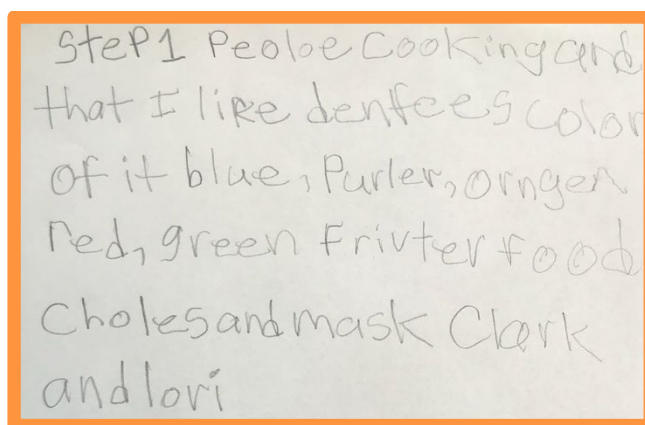 SteP1 Peoloe Cooking and
that I like denfees color
of it blue, Purler, orngen
red, green Frivter food
Choles and mask Clark
and lori